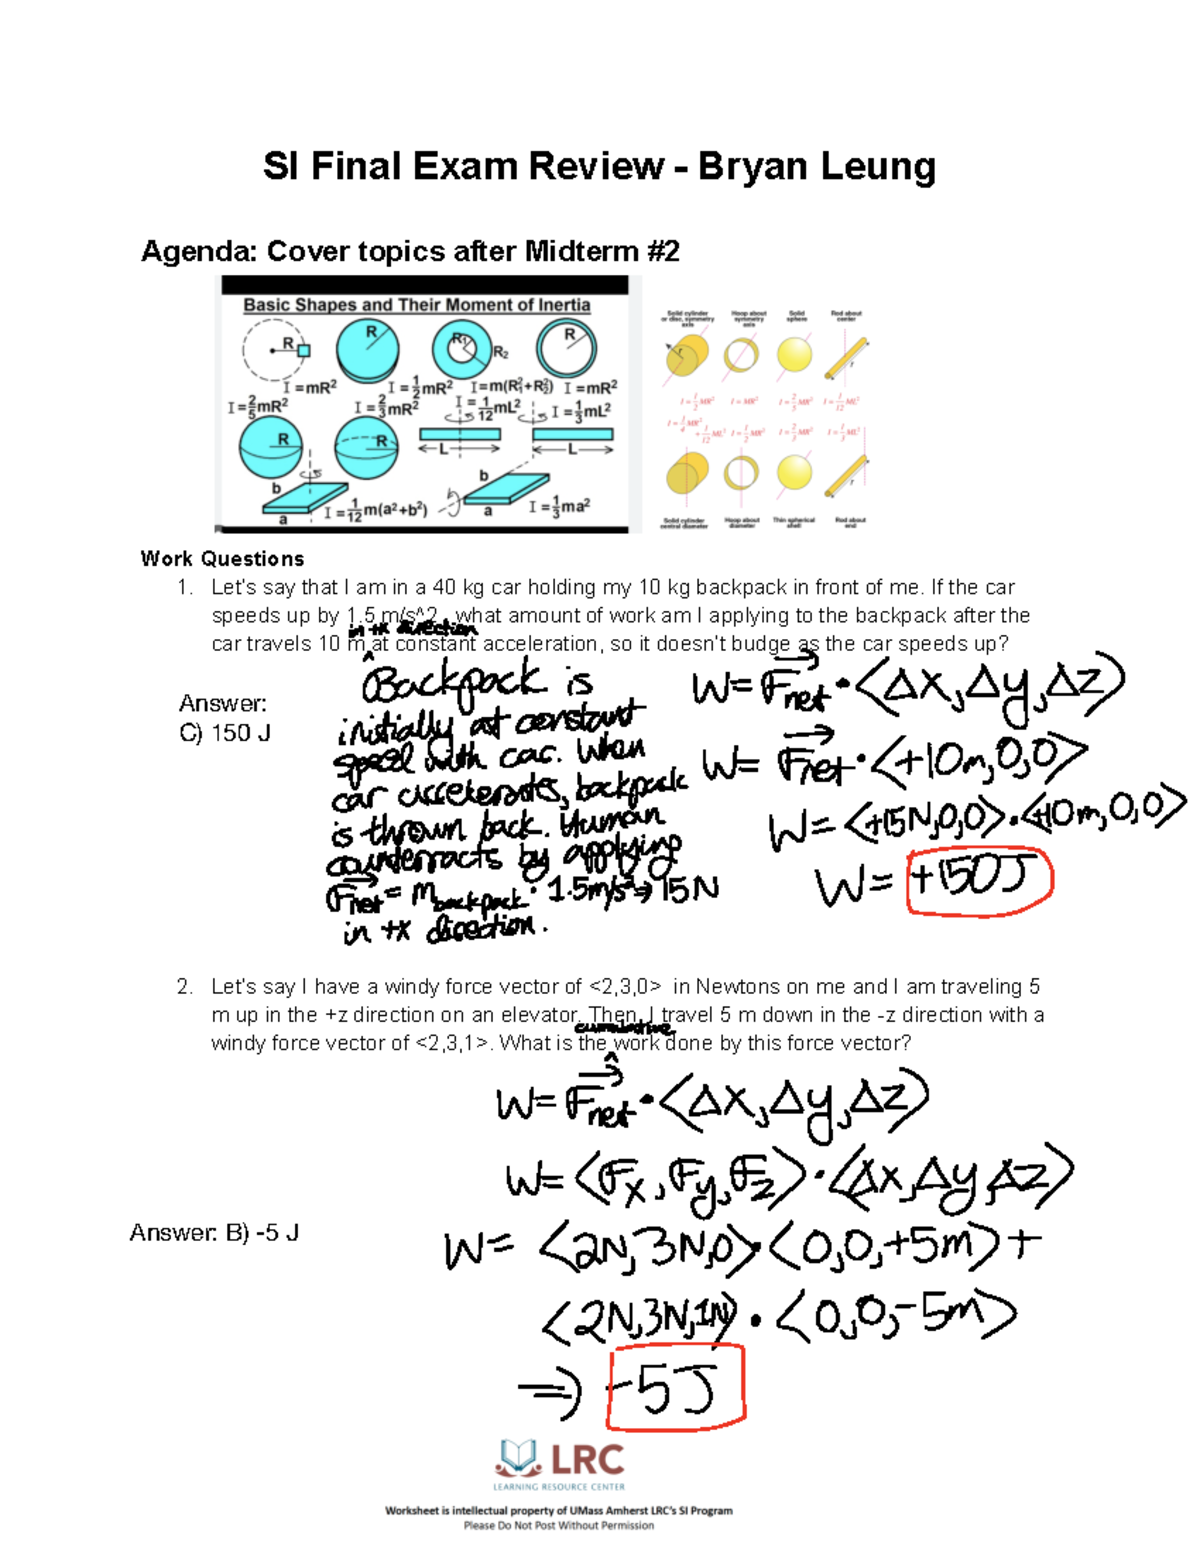 SI Final Exam Review - Bryan Leung
Agenda: Cover topics after Midterm #2
Basic Shapes and Their Moment of Inertia
R R R₁ R₂ R
I = mR² I = 1/2 mR² I = m(R₁²+R₂²) I = mR²
I = 2/5 mR² I = 2/3 mR² I = 1/12 mL² I = 1/3 mL²
R R L L
b b
a I = 1/12 m(a²+b²) a I = 1/3 ma²
Solid cylinder or disc, symmetry axis
Hoop about symmetry axis
Solid sphere
Rod about center
r r
I = 1/2 MR² I = MR² I = 2/5 MR² I = 1/12 ML²
I = 1/4 MR² + 1/12 ML² I = 1/2 MR² I = 2/3 MR² I = 1/3 ML²
r
Solid cylinder central diameter
Hoop about diameter
Thin spherical shell
Rod about end
Work Questions
1. Let's say that I am in a 40 kg car holding my 10 kg backpack in front of me. If the car
speeds up by 1.5 m/s^2, what amount of work am I applying to the backpack after the
in +x direction
car travels 10 m at constant acceleration, so it doesn't budge as the car speeds up?
Answer:
C) 150 J
Backpack is
initially at constant
speed with car. When
car accelerates, backpack
is thrown back. Human
counteracts by applying
Fnet = mbackpack · 1.5m/s² ⇒ 15N
in +x direction.
W= Fnet · <Δx, Δy, Δz>
W= Fnet · <+10m,0,0>
W= <+15N,0,0> · <+10m,0,0>
W= +150J
2. Let's say I have a windy force vector of <2,3,0> in Newtons on me and I am traveling 5
m up in the +z direction on an elevator. Then, I travel 5 m down in the -z direction with a
cumulative
windy force vector of <2,3,1>. What is the work done by this force vector?
W= Fnet · <Δx, Δy, Δz>
W= <Fx, Fy, Fz> · <Δx, Δy, Δz>
Answer: B) -5 J
W= <2N, 3N, 0> · <0,0,+5m> +
<2N,3N,1N> · <0,0,-5m>
⇒ -5J
LRC
LEARNING RESOURCE CENTER
Worksheet is intellectual property of UMass Amherst LRC's SI Program
Please Do Not Post Without Permission